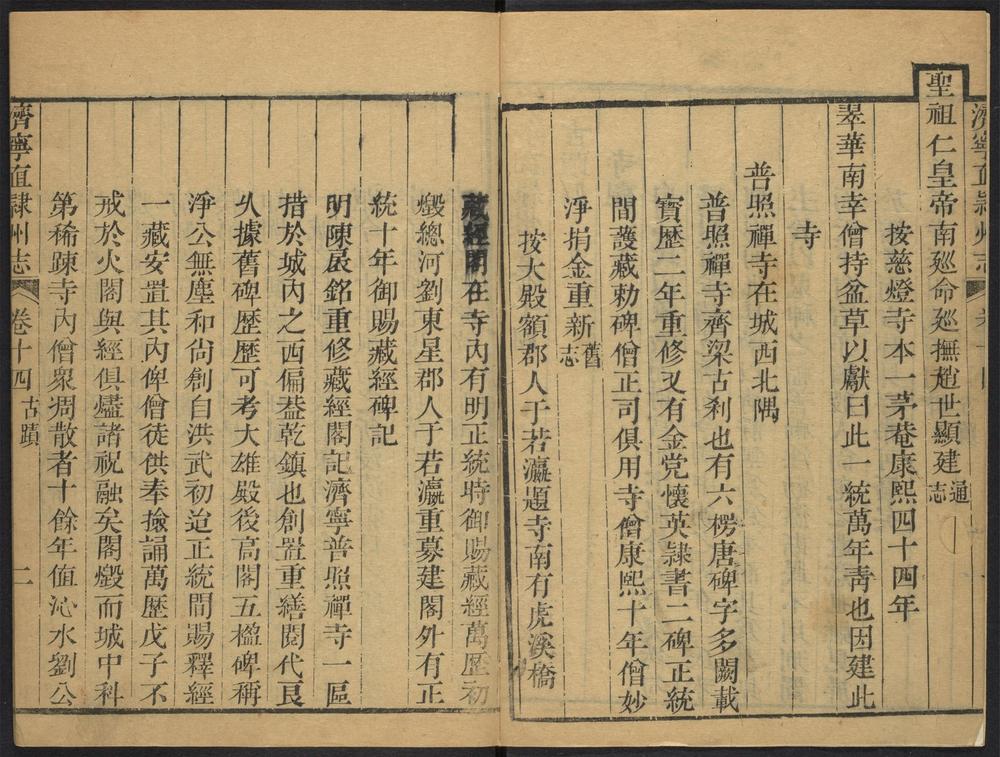 濟寧直隸州志
按慈燈寺本一茅菴康熙四十四年
聖祖仁皇帝南廵命廵撫趙世顯建通志
翠華南幸僧持盆草以獻曰此一統萬年靑也因建此
寺
普照禪寺在城西北隅
普照禪寺齊梁古刹也有六楞唐碑字多闕載
寳歴二年重修又有金党懷英隷書二碑正統
間護藏勅碑僧正司俱用寺僧康熙十年僧妙
淨捐金重新舊志
按大殿額郡人于若瀛題寺南有虎溪橋
藏經閣在寺內有明正統時御賜藏經萬歴初
燬總河劉東星郡人于若瀛重募建閣外有正
統十年御賜藏經碑記
明陳扆銘重修藏經閣記濟寧普照禪寺一區
措於城內之西偏葢乾鎮也創置重繕閱代艮
乆據舊碑歴歴可考大雄殿後高閣五楹碑稱
淨公無塵和尙創自洪武初迨正統間賜釋經
一藏安置其內俾僧徒供奉撿誦萬歴戊子不
戒於火閣與經俱燼諸祝融矣閣燬而城中科
第稀踈寺內僧衆凋散者十餘年値沁水劉公
濟寧直隸州志 卷十四 古蹟 二